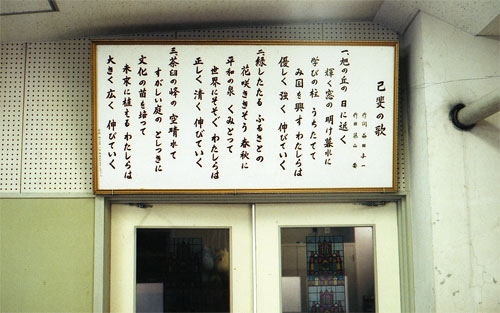 己斐の歌
一、旭の丘の 日に匂く
輝く窓の 明け暮れに
学びの柱 うちたてて
み国を興す わたしらは
優しく 強く 伸びていく
二、緑したたる ふるさとの
花咲ききそう 春秋に
平和の泉 くみとって
世界にそそぐ わたしらは
正しく 清く 伸びていく
三、茶臼の峰の 空晴れて
すがしい庭の としつきに
文化の苗を 培って
未来に植える わたしらは
大きく 広く 伸びていく